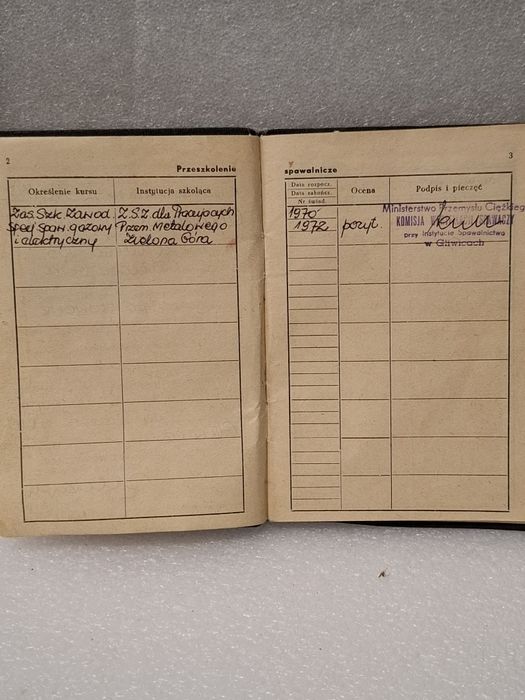 2
Przeszkolenie
Określenie kursu
Instytucja szkoląca
Zas. Szk. Zawod.
Spec. spaw. gazowy
i elektryczny
Z.S.Z dla Pracujących
Przem. Metalowego
Zielona Góra
3
spawalnicze
Data rozpocz.
Data zakończ.
Nr świad.
Ocena
Podpis i pieczęć
1970
1972
pozyt
Ministerstwo Przemysłu Ciężkiego
KOMISJA
przy Instytucie Spawalnictwa
w Gliwicach